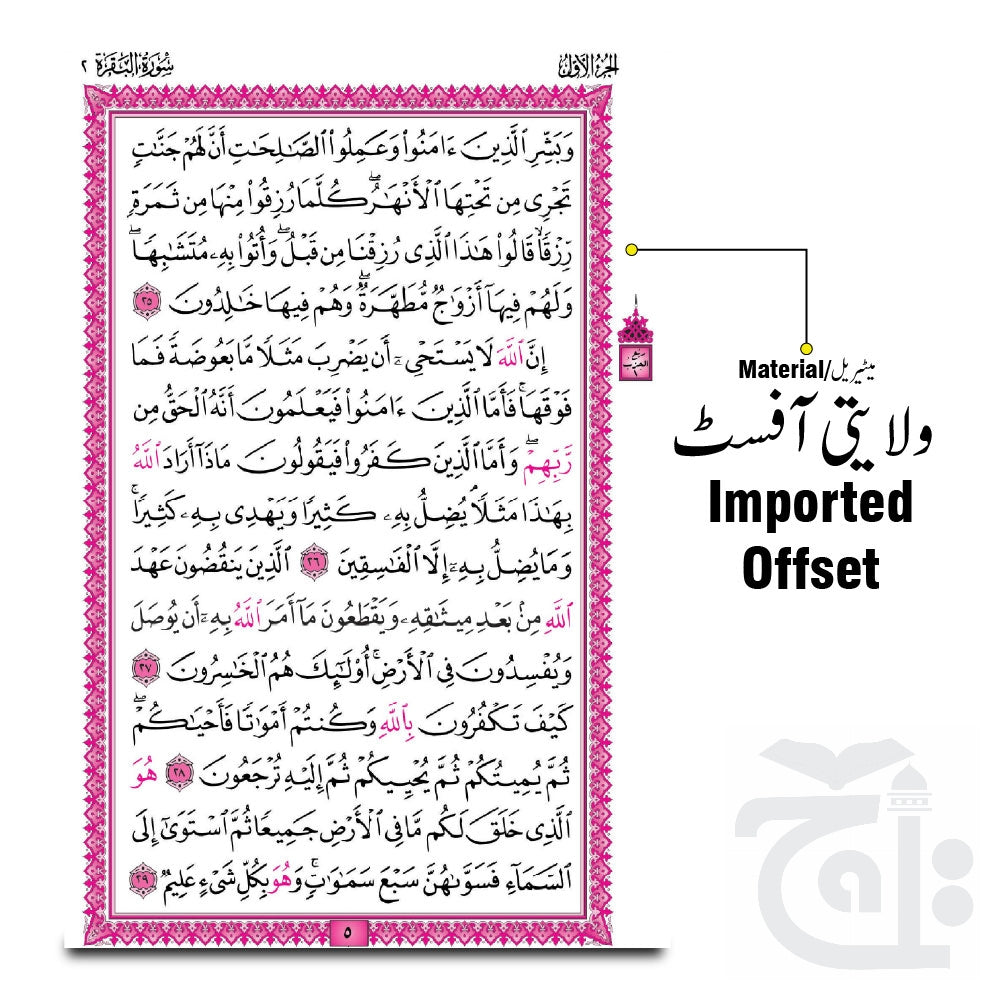 الجزء الأول
سورة البقرة ٢
وَبَشِّرِ ٱلَّذِينَ ءَامَنُوا۟ وَعَمِلُوا۟ ٱلصَّٰلِحَٰتِ أَنَّ لَهُمْ جَنَّٰتٍ
تَجْرِى مِن تَحْتِهَا ٱلْأَنْهَٰرُ ۖ كُلَّمَا رُزِقُوا۟ مِنْهَا مِن ثَمَرَةٍ
رِّزْقًا ۙ قَالُوا۟ هَٰذَا ٱلَّذِى رُزِقْنَا مِن قَبْلُ ۖ وَأُتُوا۟ بِهِۦ مُتَشَٰبِهًا ۖ
وَلَهُمْ فِيهَآ أَزْوَٰجٌ مُّطَهَّرَةٌ ۖ وَهُمْ فِيهَا خَٰلِدُونَ ٢٥
إِنَّ ٱللَّهَ لَا يَسْتَحْىِۦٓ أَن يَضْرِبَ مَثَلًا مَّا بَعُوضَةً فَمَا
فَوْقَهَا ۚ فَأَمَّا ٱلَّذِينَ ءَامَنُوا۟ فَيَعْلَمُونَ أَنَّهُ ٱلْحَقُّ مِن
رَّبِّهِمْ ۖ وَأَمَّا ٱلَّذِينَ كَفَرُوا۟ فَيَقُولُونَ مَاذَآ أَرَادَ ٱللَّهُ
بِهَٰذَا مَثَلًا ۘ يُضِلُّ بِهِۦ كَثِيرًا وَيَهْدِى بِهِۦ كَثِيرًا ۚ
وَمَا يُضِلُّ بِهِۦٓ إِلَّا ٱلْفَٰسِقِينَ ٢٦ ٱلَّذِينَ يَنقُضُونَ عَهْدَ
ٱللَّهِ مِنۢ بَعْدِ مِيثَٰقِهِۦ وَيَقْطَعُونَ مَآ أَمَرَ ٱللَّهُ بِهِۦٓ أَن يُوصَلَ
وَيُفْسِدُونَ فِى ٱلْأَرْضِ ۚ أُو۟لَٰٓئِكَ هُمُ ٱلْخَٰسِرُونَ ٢٧
كَيْفَ تَكْفُرُونَ بِٱللَّهِ وَكُنتُمْ أَمْوَٰتًا فَأَحْيَٰكُمْ ۖ
ثُمَّ يُمِيتُكُمْ ثُمَّ يُحْيِيكُمْ ثُمَّ إِلَيْهِ تُرْجَعُونَ ٢٨ هُوَ
ٱلَّذِى خَلَقَ لَكُم مَّا فِى ٱلْأَرْضِ جَمِيعًا ثُمَّ ٱسْتَوَىٰٓ إِلَى
ٱلسَّمَآءِ فَسَوَّىٰهُنَّ سَبْعَ سَمَٰوَٰتٍ ۚ وَهُوَ بِكُلِّ شَىْءٍ عَلِيمٌ ٢٩
٥
ربع
الحزب
Material/میٹیریل
ولایتی آفسٹ
Imported
Offset